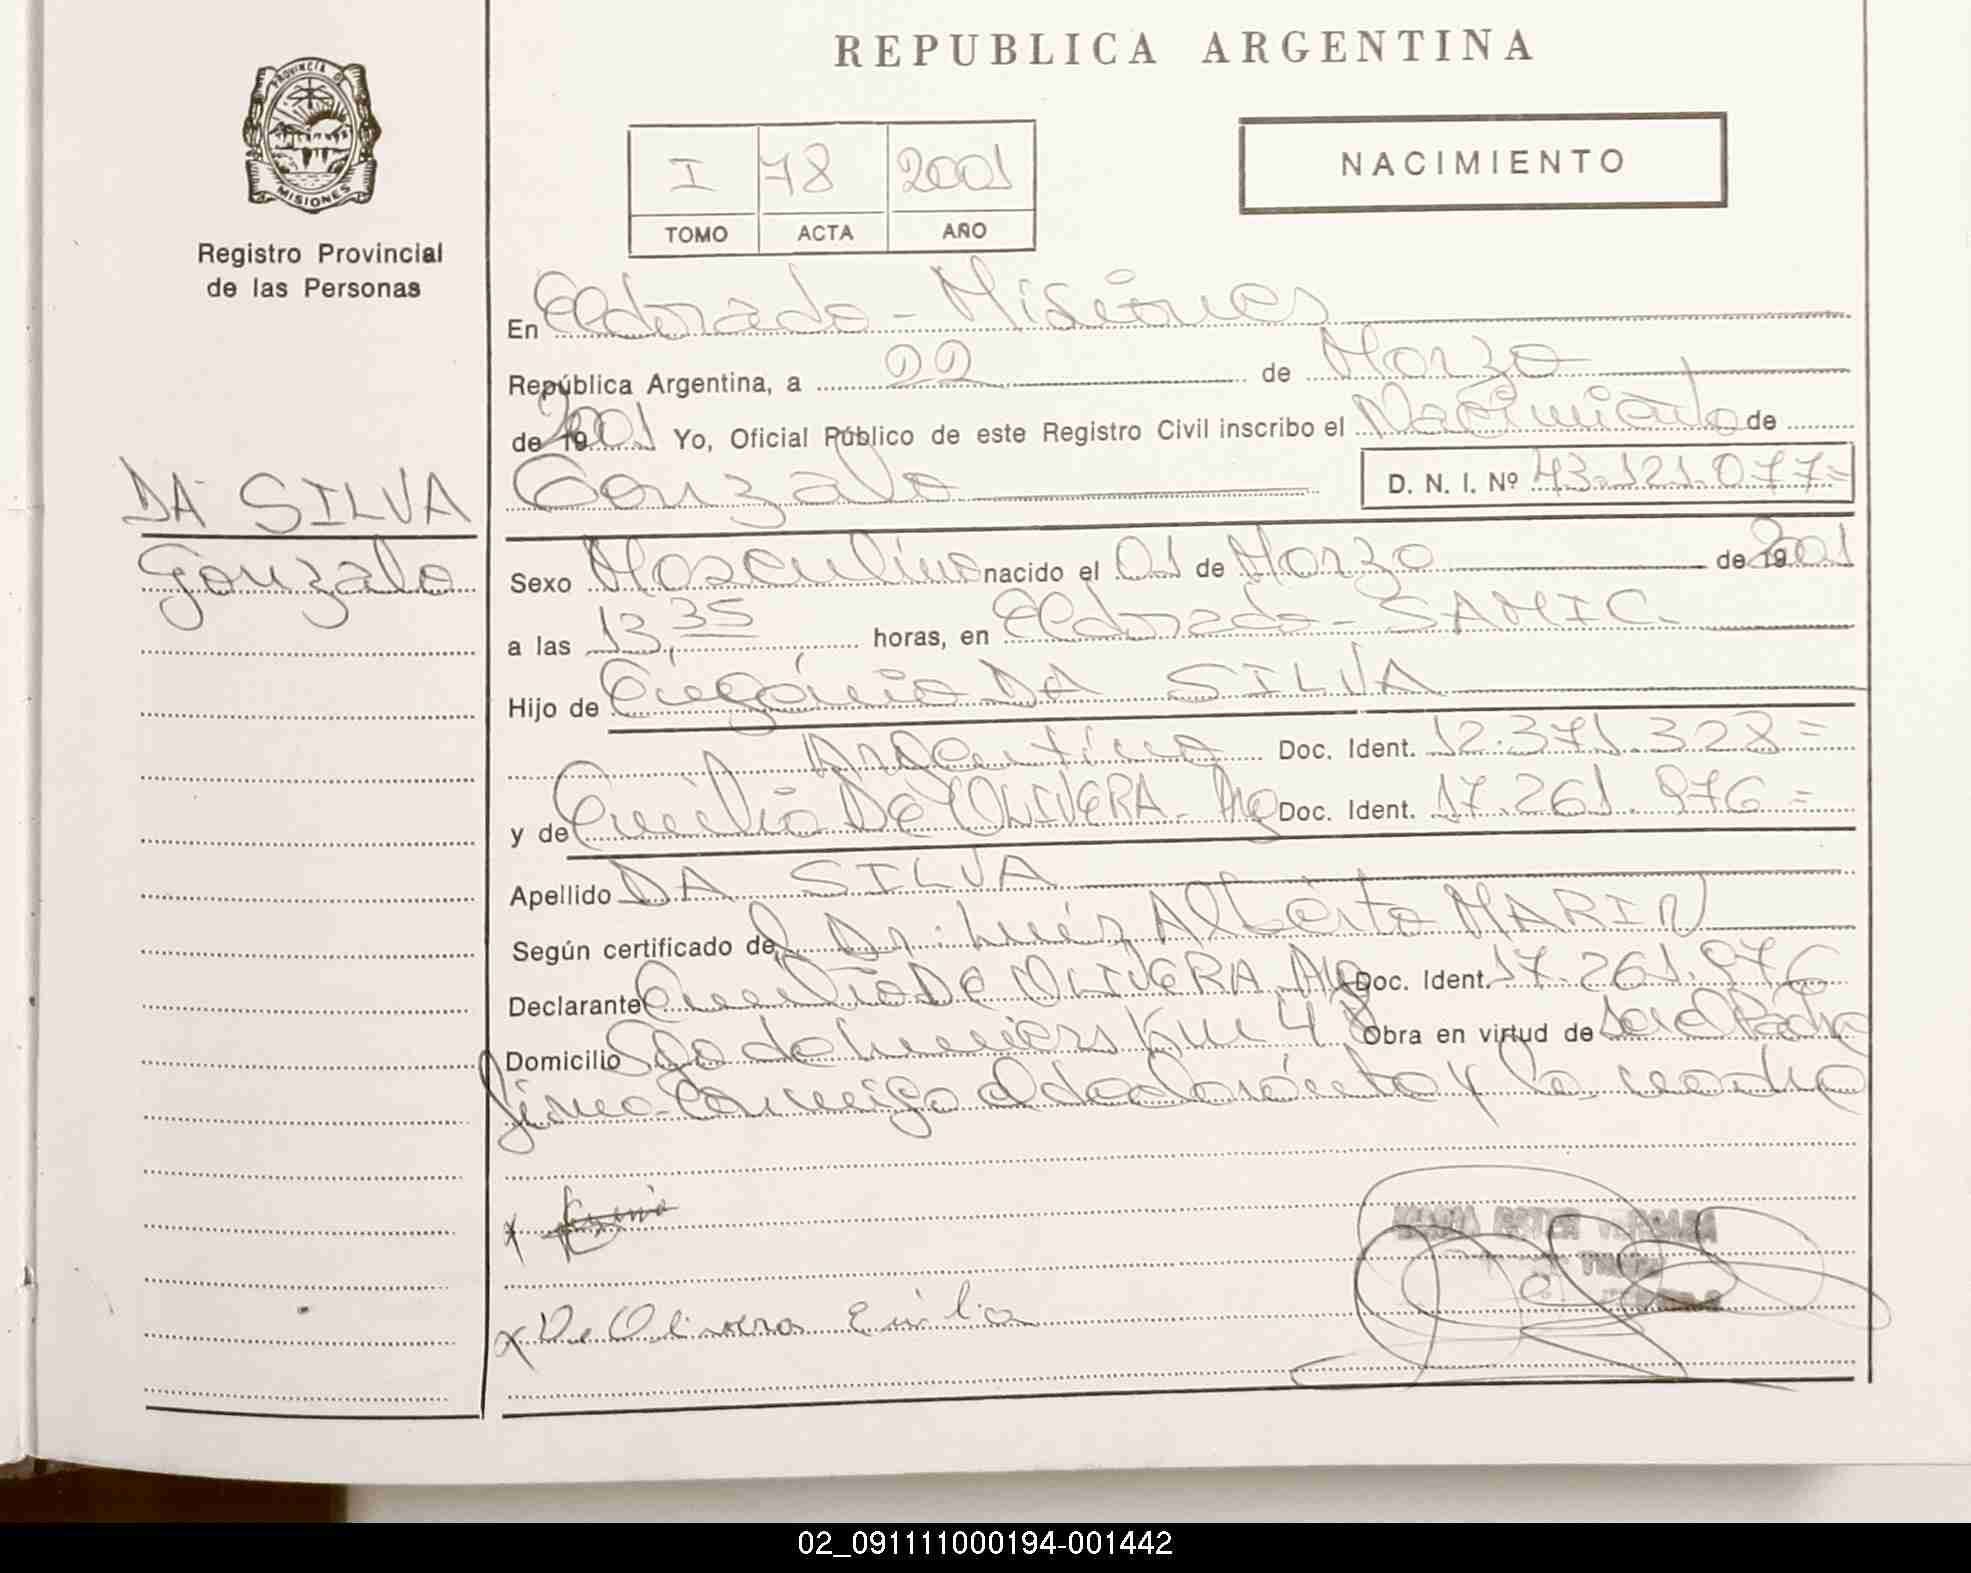 REPUBLICA ARGENTINA
PROVINCIA DE
MISIONES
Registro Provincial
de las Personas
I 78 2001
TOMO ACTA AÑO
NACIMIENTO
En Eldorado - Misiones
República Argentina, a 22 de Marzo
de 19 2001 Yo, Oficial Público de este Registro Civil inscribo el Nacimiento de
Gonzalo D. N. I. Nº 43.121.077=
DA SILVA
Gonzalo
Sexo Masculino nacido el 01 de Marzo de 19 2001
a las 13,35 horas, en Eldorado - SAMIC.
Hijo de Eugenio DA SILVA
Argentino Doc. Ident. 12.371.328=
y de Emilia DE OLIVERA - Arg Doc. Ident. 17.261.976=
Apellido DA SILVA
Según certificado de Dr. Luis Alberto MARIN
Declarante Emilia DE OLIVERA Arg Doc. Ident. 17.261.976
Domicilio Sgo de Liniers Km 4 Obra en virtud de ser el Padre
firma conmigo el declarante y la madre
x
x De Olivera Emilia
MARIA ESTER
02_091111000194-001442